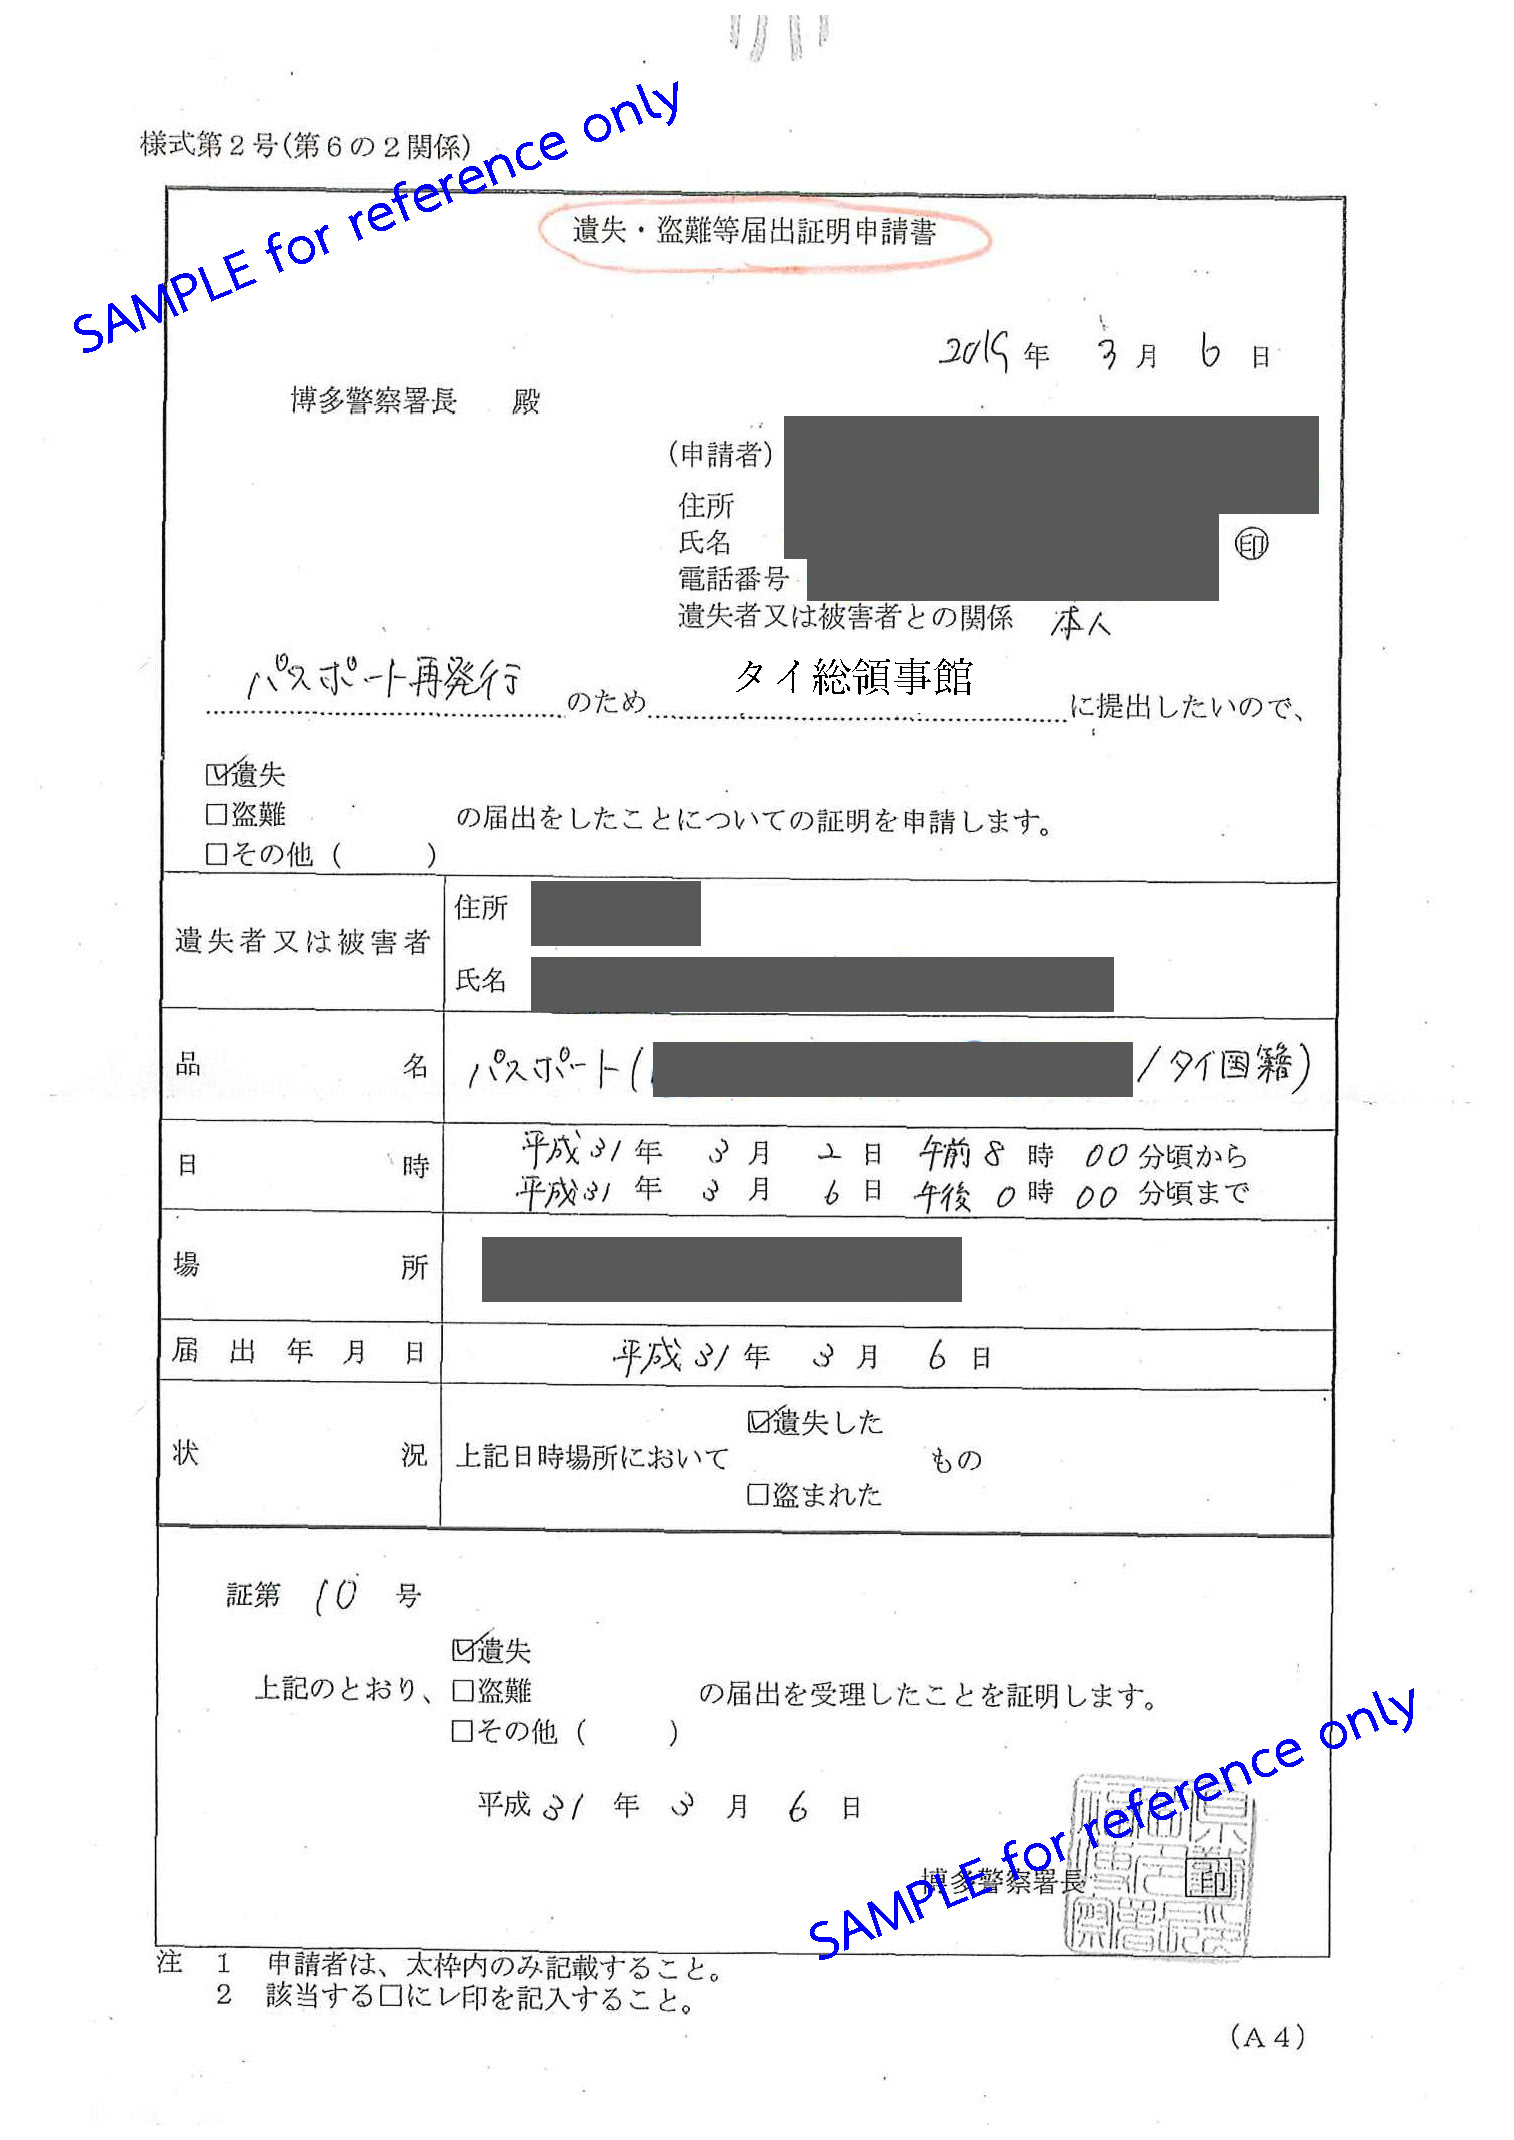 様式第２号(第６の２関係)
SAMPLE for reference only
遺失・盗難等届出証明申請書
2019年 3月 6日
博多警察署長 殿
(申請者)
住所
氏名 ㊞
電話番号
遺失者又は被害者との関係 本人
パスポート再発行のためタイ総領事館に提出したいので、
☑遺失
□盗難 の届出をしたことについての証明を申請します。
□その他( )
遺失者又は被害者
住所
氏名
品名 パスポート( /タイ国籍)
日時 平成31年 3月 2日 午前8時 00分頃から
平成31年 3月 6日 午後0時 00分頃まで
場所
届出年月日 平成31年 3月 6日
状況 上記日時場所において
☑遺失した
もの
□盗まれた
証第 10 号
☑遺失
上記のとおり、□盗難 の届出を受理したことを証明します。
□その他( )
平成31年 3月 6日
博多警察署長 印
SAMPLE for reference only
注 １ 申請者は、太枠内のみ記載すること。
２ 該当する□にレ印を記入すること。
(Ａ４)